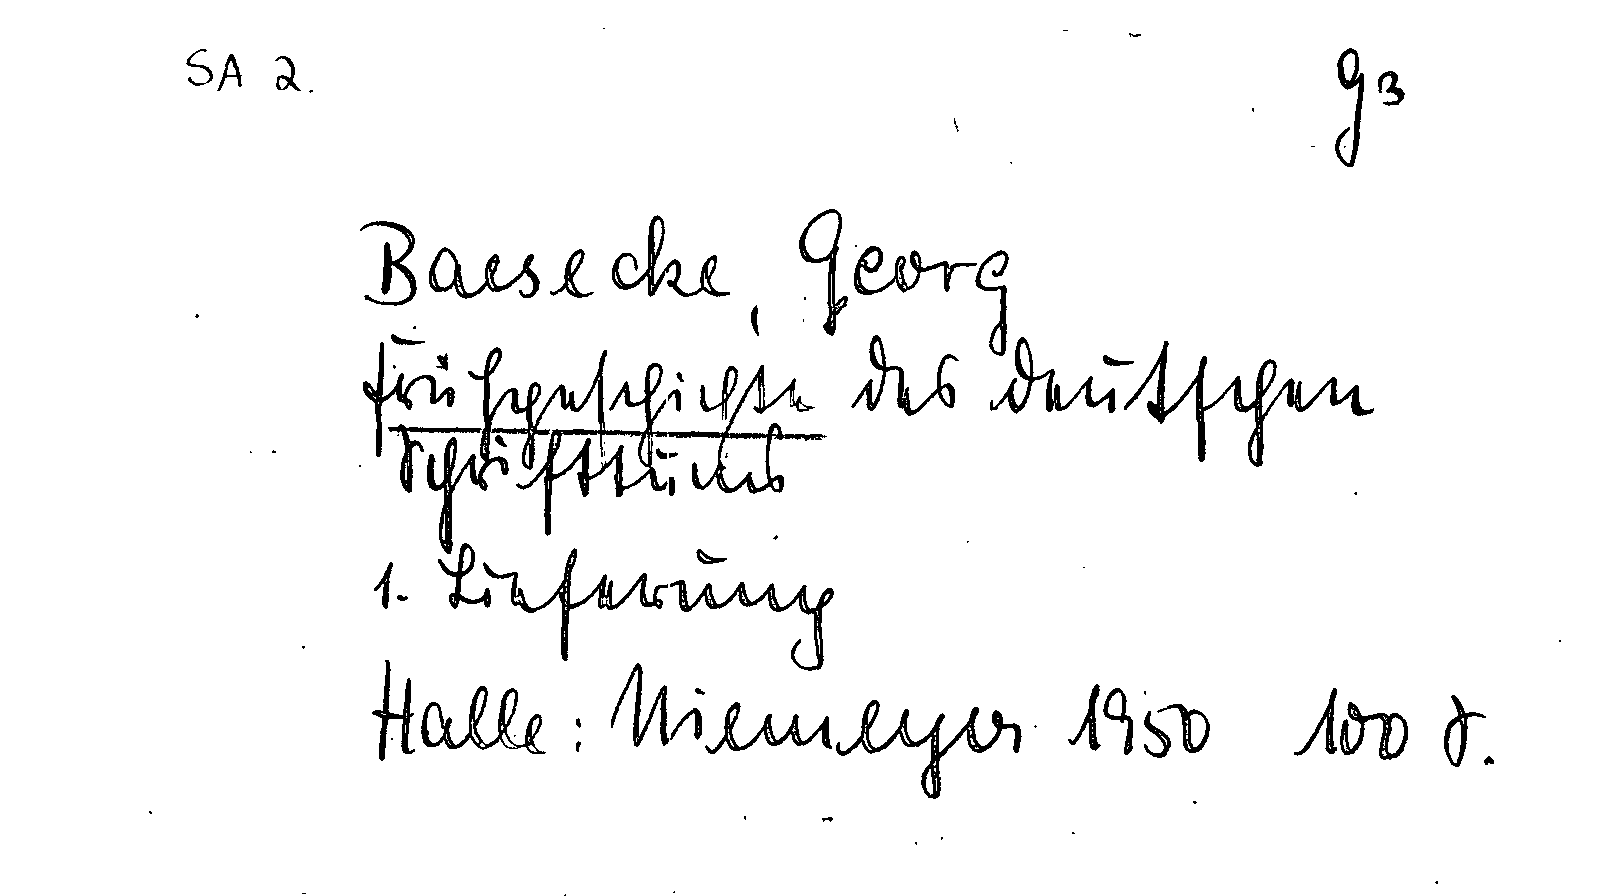 SA 2.
g3
Baesecke, Georg
Frühgeschichte des deutschen
Schrifttums
1. Lieferung
Halle: Niemeyer 1950 100 S.